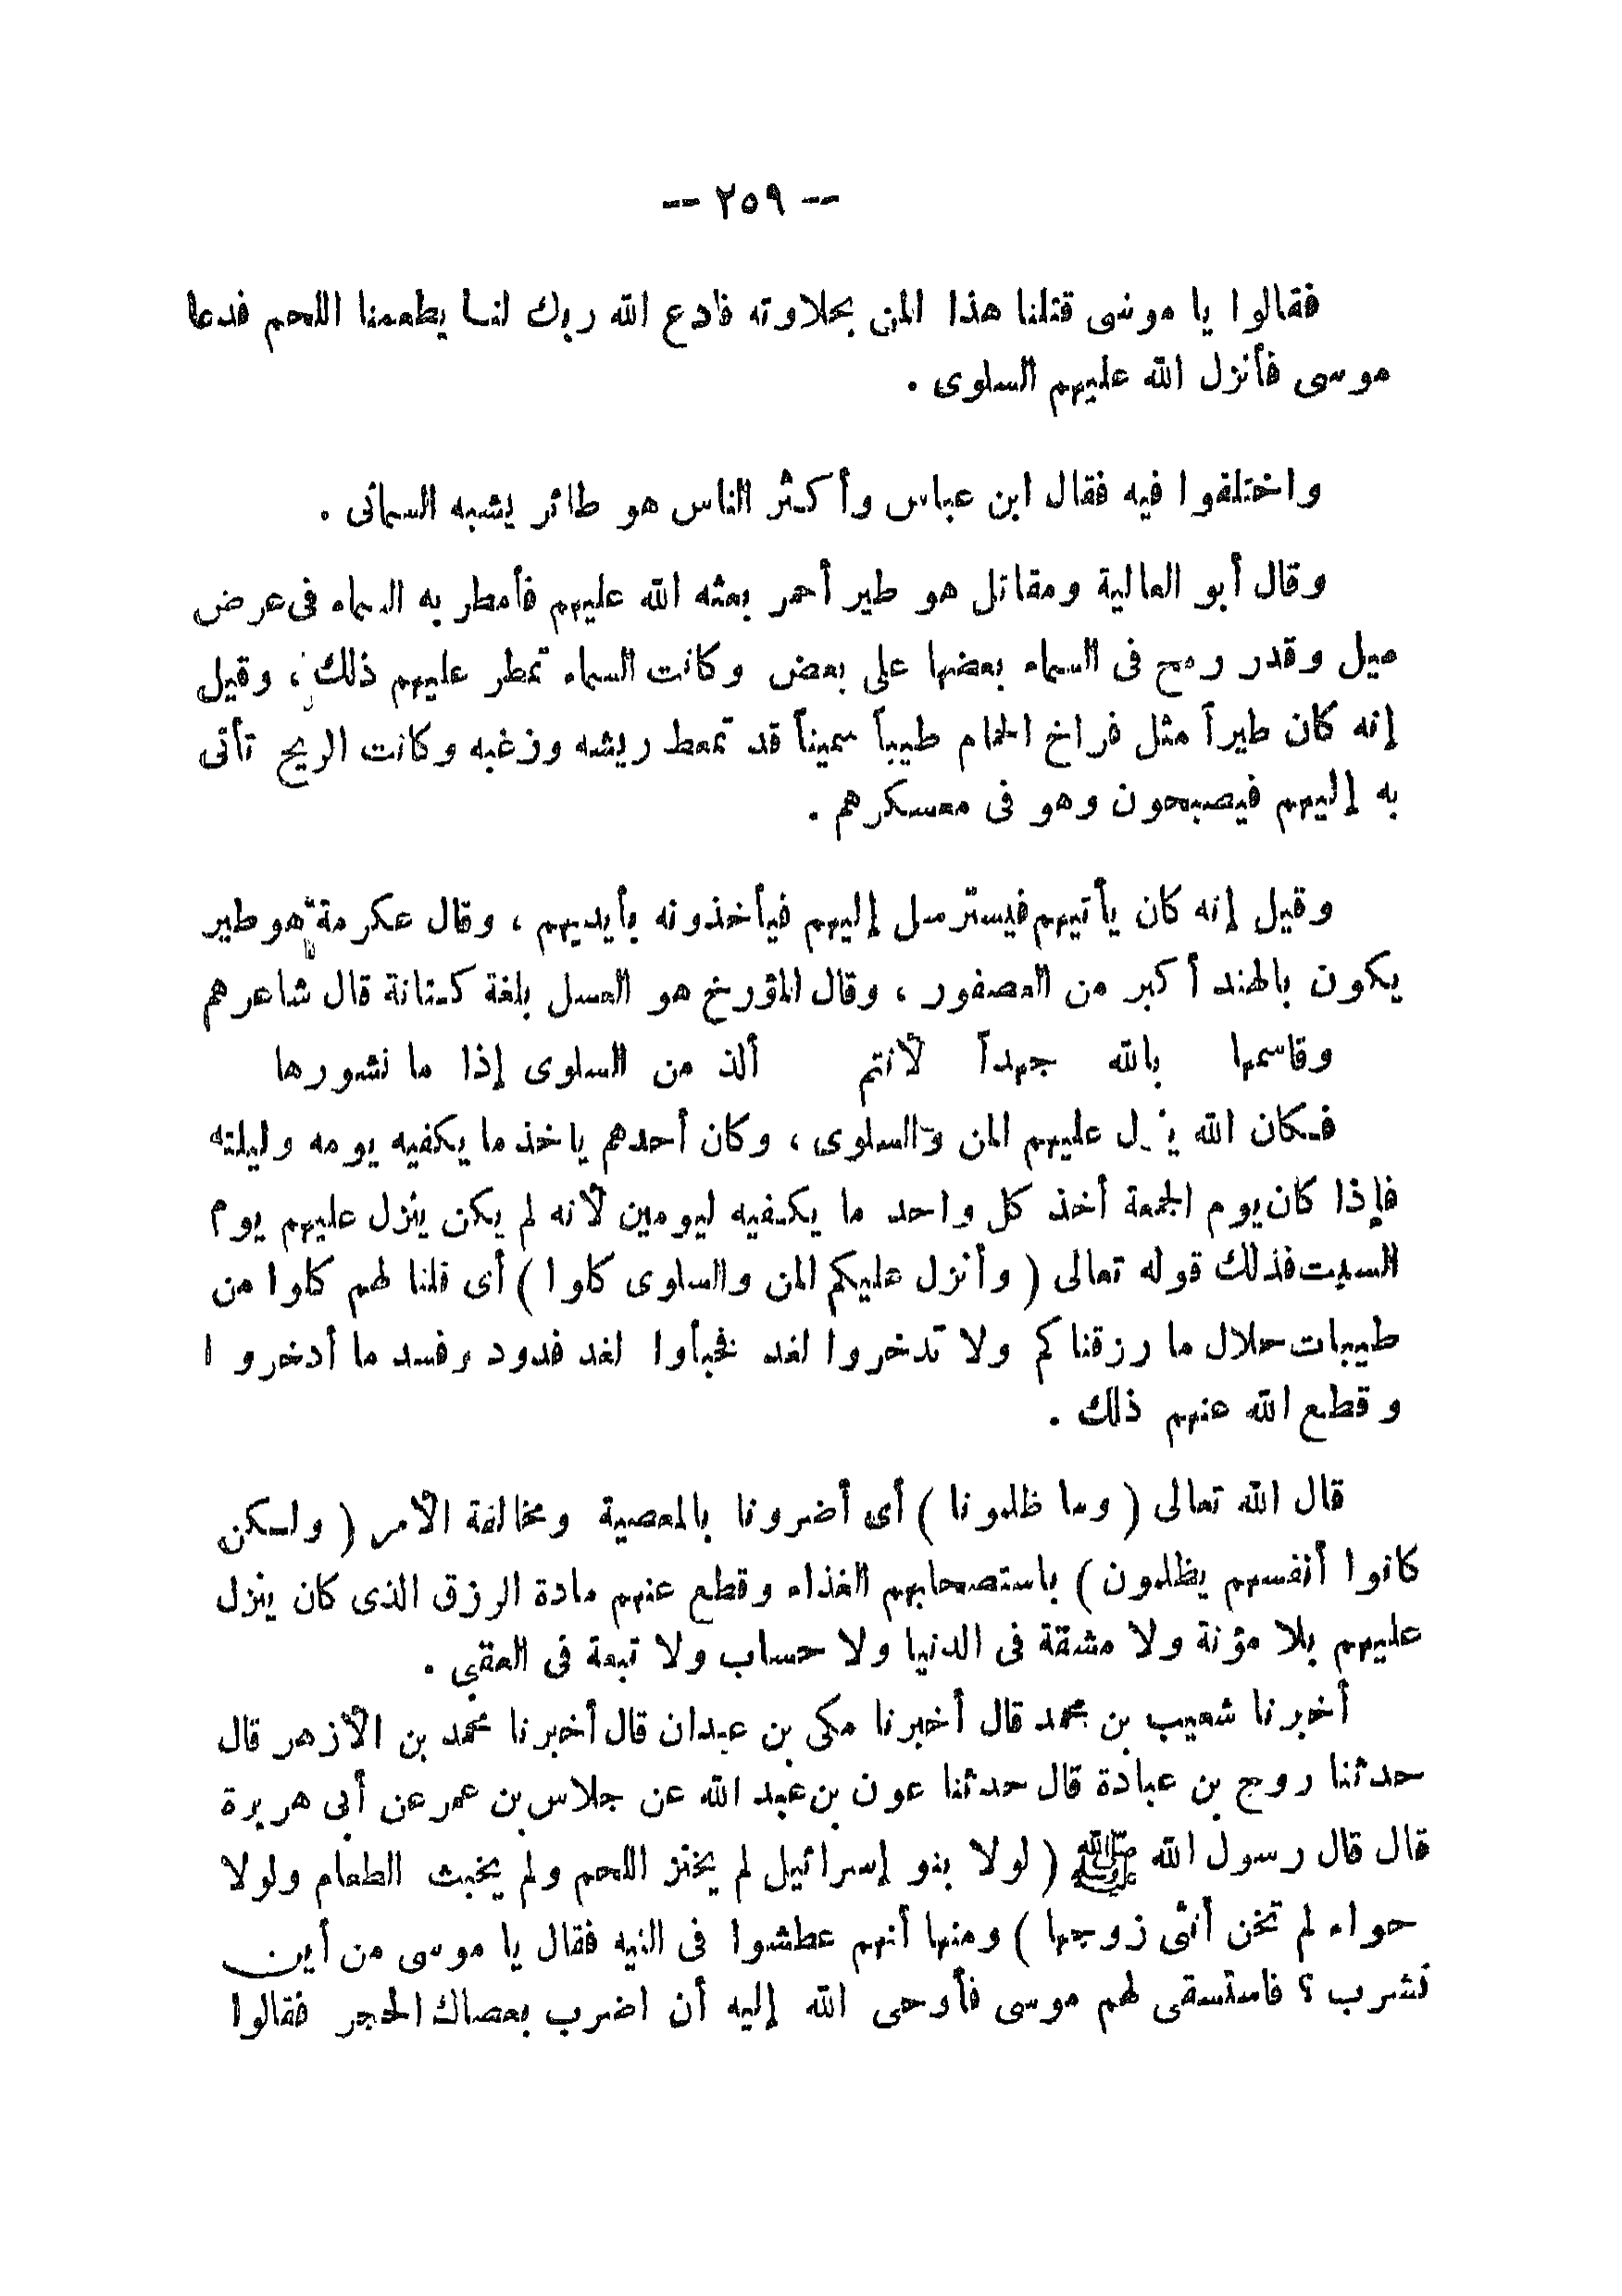 -- ٢٥٩ --
فقالوا يا موسى قتلنا هذا المن بحلاوته فادع الله ربك لنا يطعمنا اللحم فدعا
موسى فأنزل الله عليهم السلوى .
واختلفوا فيه فقال ابن عباس وأكثر الناس هو طائر يشبه السمانى .
وقال أبو العالية ومقاتل هو طير أحمر بعثه الله عليهم فأمطر به السماء فى عرض
ميل وقدر رمح فى السماء بعضها على بعض وكانت السماء تمطر عليهم ذلك ، وقيل
إنه كان طيراً مثل فراخ الحمام طيباً سميناً قد تمعط ريشه وزغبه وكانت الريح تأتى
به إليهم فيصبحون وهو فى معسكرهم .
وقيل إنه كان يأتيهم فيسترسل إليهم فيأخذونه بأيديهم ، وقال عكرمة هو طير
يكون بالهند أكبر من العصفور ، وقال المؤرخ هو العسل بلغة كنانة قال شاعرهم
وقاسمها بالله جهداً لأنتم ألذ من السلوى إذا ما نشورها
فكان الله ينزل عليهم المن والسلوى ، وكان أحدهم ياخذ ما يكفيه يومه وليلته
فإذا كان يوم الجمعة أخذ كل واحد ما يكفيه ليومين لأنه لم يكن ينزل عليهم يوم
السبت فذلك قوله تعالى ( وأنزل عليكم المن والسلوى كلوا ) أى قلنا لهم كلوا من
طيبات حلال ما رزقناكم ولا تدخروا لغد فخبأوا لغد فدود وفسد ما أدخروا
وقطع الله عنهم ذلك .
قال الله تعالى ( وما ظلمونا ) أى أضرونا بالمعصية ومخالفة الأمر ( ولكن
كانوا أنفسهم يظلمون ) باستصحابهم الغذاء وقطع عنهم مادة الرزق الذى كان ينزل
عليهم بلا مؤنة ولا مشقة فى الدنيا ولا حساب ولا تبعة فى العقبى .
أخبرنا شعيب بن محمد قال أخبرنا مكى بن عبدان قال أخبرنا محمد بن الأزهر قال
حدثنا روح بن عبادة قال حدثنا عون بن عبد الله عن جلاس بن عمر عن أبى هريرة
قال قال رسول الله ﷺ ( لولا بنو إسرائيل لم يخنز اللحم ولم يخبث الطعام ولولا
حواء لم تخن أنثى زوجها ) ومنها أنهم عطشوا فى التيه فقال يا موسى من أين
نشرب ؟ فاستسقى لهم موسى فأوحى الله إليه أن اضرب بعصاك الحجر فقالوا